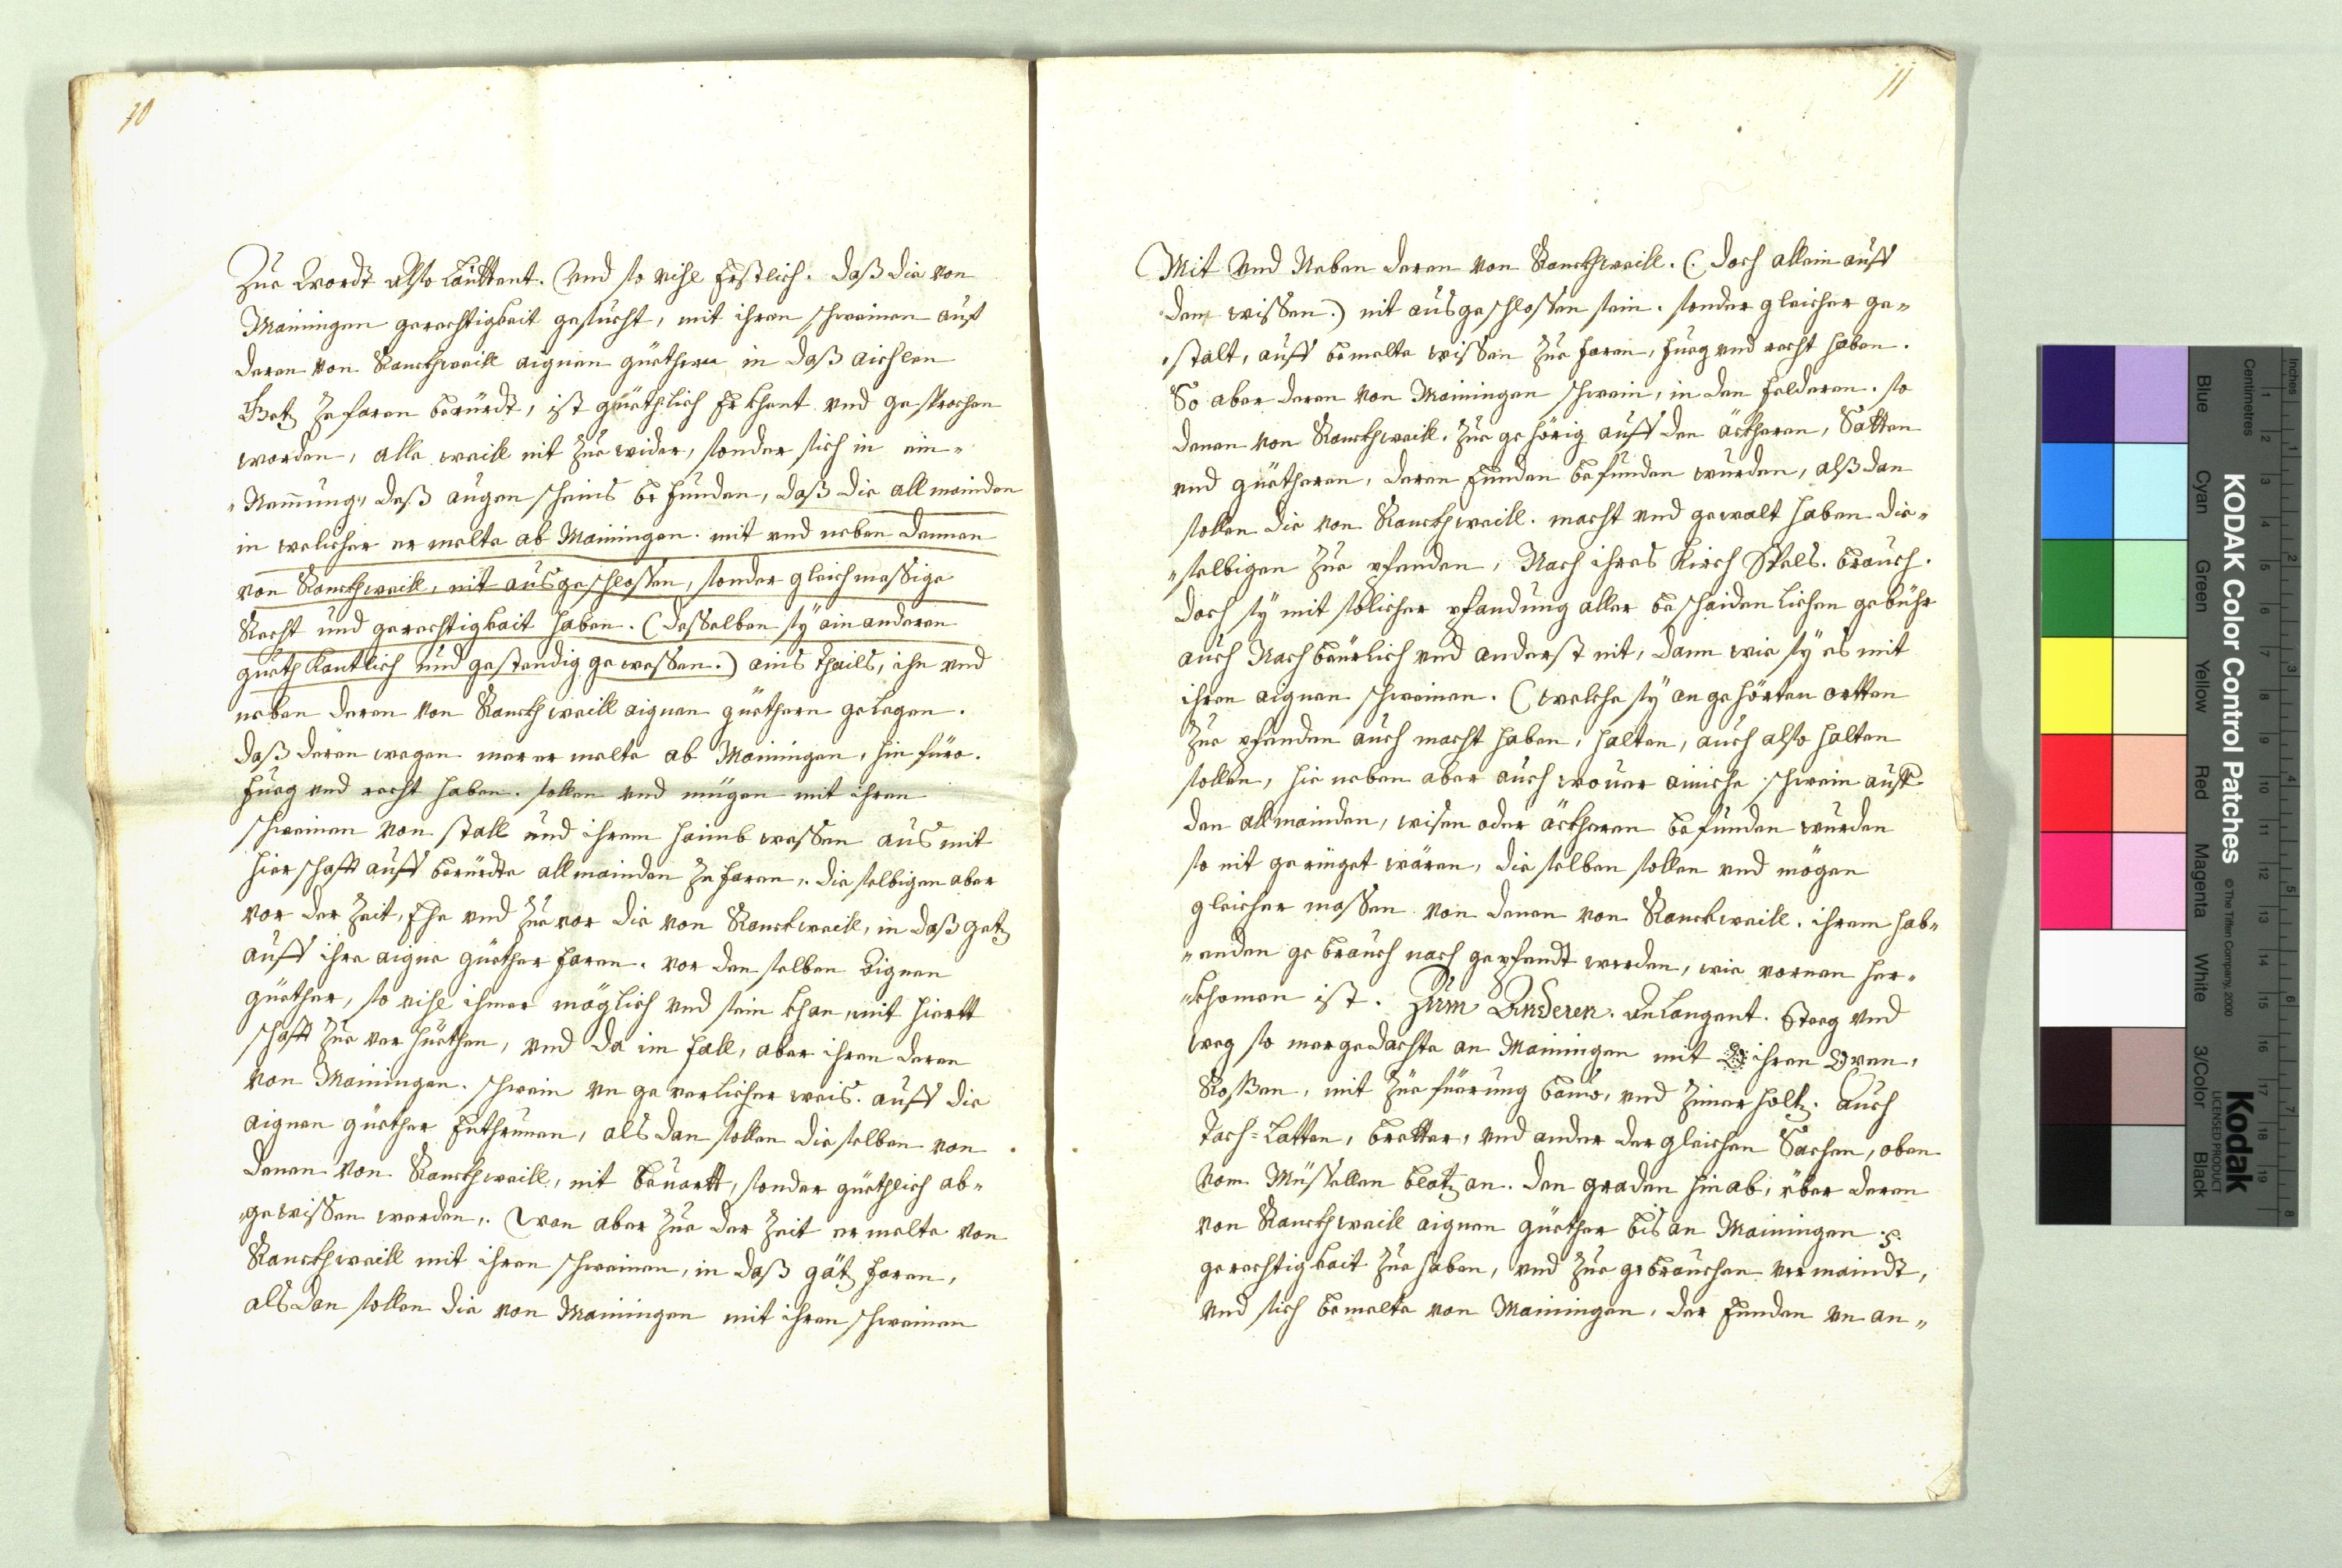 10
Zue Wordt also Lauttent. Und so vihl Erstlich. daß die von
Mainingen gerechtigkeit gesucht, mit ihren schweinen auf
deren von Ranckhweill aignen güethern in daß aichlen
Getz ze faren berürdt, ist güethlich Erkhent und gesprochen
worden, alle weill nit zue wider, sonder sich in ein-
"Nemung, deß augen scheins befunden, daß die allmainden
in welicher ermelte ab Mainingen. mit und neben dennen
von Ranckhweill, nit ausgeschlossen, sonder gleichmessige
Recht und gerechtigkait haben. (desselben sÿ ain anderen
gueth Kantlich und gestendig gewessen.) ains thails, ihn und
neben deren von Ranckhweill aignen güethern gelegen.
daß deren wegen merermelte ab Mainingen, hinfüro.
Fueg und recht haben. sollen und mügen mit ihren
schweinen von stall und ihrem haimb wessen aus mit
hierschafft auff berürdte allmainden ze faren,. die selbigen aber
vor der Zeit, Ehe und zuevor die von Ranckweill, in daß getz
auff ihre aigne güether faren. vor den selben Aignen
güether, so vihl ihmer möglich und sein khan, mit hiertt
schafft zue verhüethen, und da im fall, aber ihren deren
von Mainingen. schwein ungeverlicher weis. auff die
aignen güether Enthrunen, als dan sollen die selben von
denen von Ranckhweill, nit beuartt, sonder güethlich ab-
"gewissen werden,. Wan aber zue der Zeit ermelte von
Ranckhweill mit ihren schweinen, in daß gätz faren,
als dan sollen die von Mainingen mit ihren schweinen
11
Mit Und Neben deren von Ranckhweill. (: doch allein auff
den wissen.) nit ausgeschlossen sein. sonder gleicher ge-
"stalt, auff bemelte wissen zue faren, fueg und recht haben.
So aber deren von Mainingen schwein, in den felderen. so
denen von Ranckhweill. zue gehörig auff den äckheren, Satten
und güetheren, deren Enden befunden wurden, alß dan
sollen die von Ranckhweill. macht und gewalt haben die-
"selbigen zue pfenden, Nach ihres Kirch Spels. brauch.
doch sÿ mit solicher pfandung aller beschaidenlichen gebühr
auch Nachbeürlich und anderst nit, dann wie sÿ es mit
ihren aignen schweinen. (welche sÿ an gehörten ortten
zue pfenden auch macht haben, halten, auch also halten
sollen, hie neben aber auch wouer ainiche schwein auff
den allmainden, wisen oder äckheren befunden wurden
so nit geringet wären, die selben sollen und mögen
gleicher massen von denen von Ranckweill. ihrem hab-
"enden gebrauch nach gepfendt werden, wie vornen her-
"khomen ist. Zum Anderen. anLangent. Steeg und
weg so mergedachte an Mainingen mit ihren
Rossen, mit zue füerung bauw, und Zimerholtz. Auch
Tach=Latten, bretter, und ander der gleichen Sachen, oben
vom Müssellen blatz an. den graden hinab, über deren
von Ranckhweill aignen güether bis an Mainingen
gerechtigkait zue haben, und zue gebrauchen vermaindt,
und sich bemelte von Mainingen, der Enden un an-"